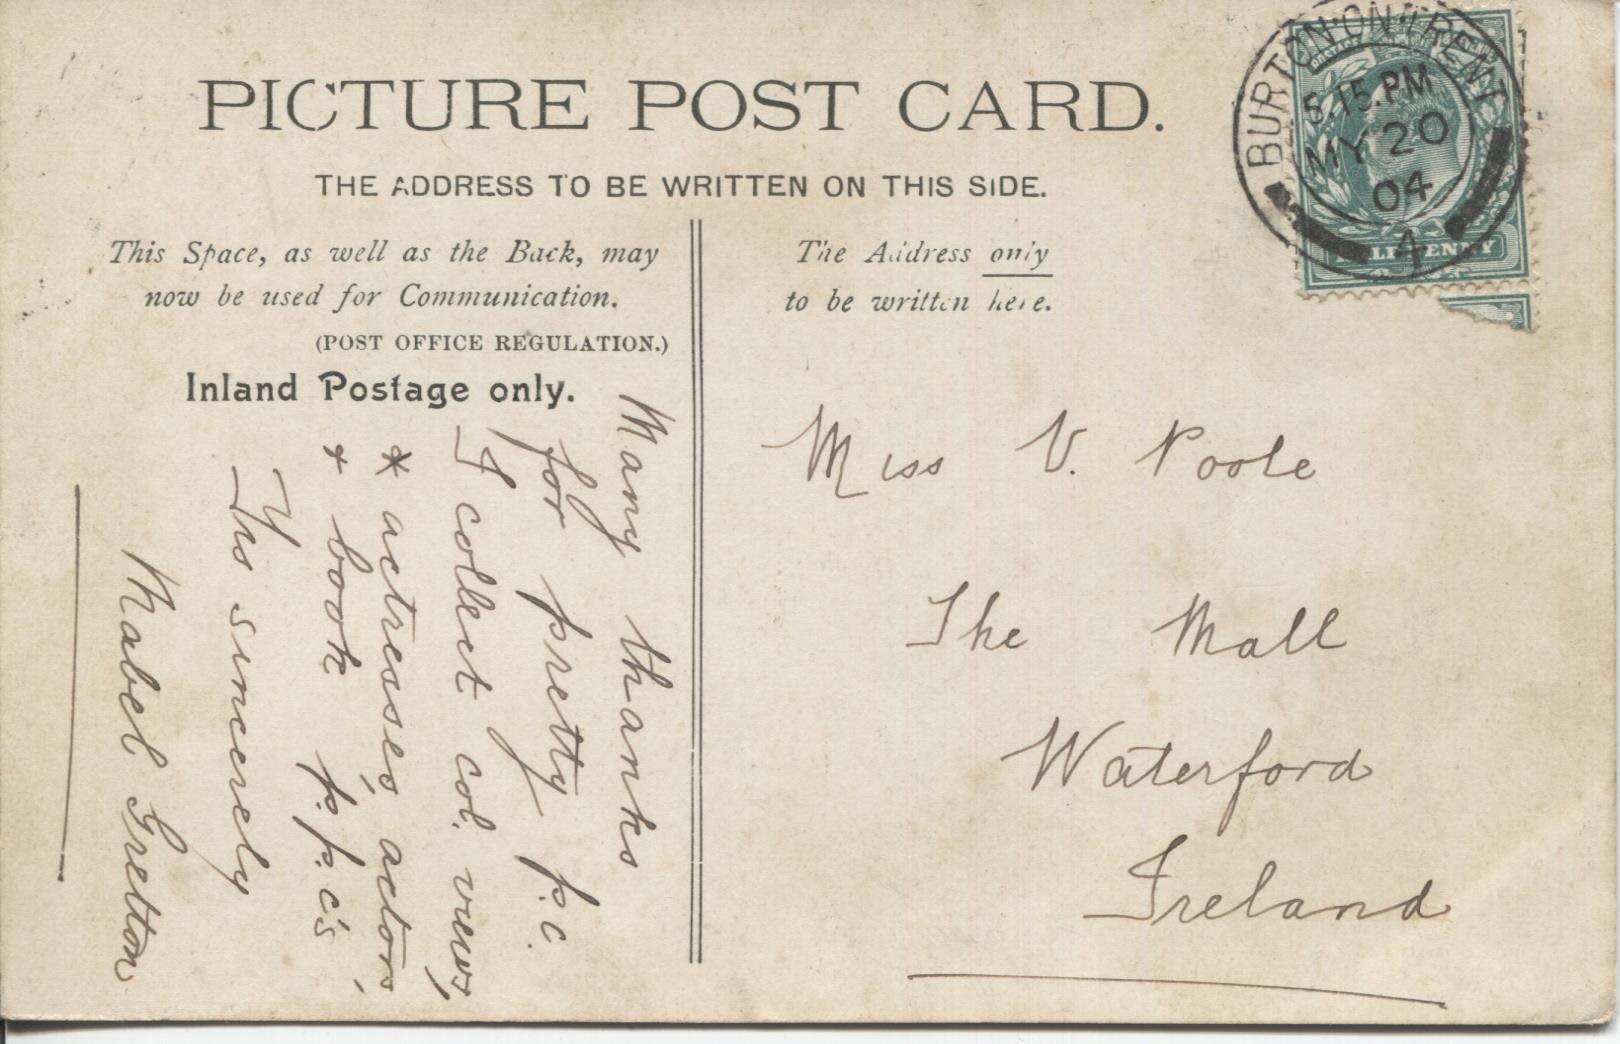 PICTURE POST CARD.
THE ADDRESS TO BE WRITTEN ON THIS SIDE.
This Space, as well as the Back, may
now be used for Communication.
(POST OFFICE REGULATION.)
Inland Postage only.
Many thanks
for pretty p.c.
I collect col. views,
* actresses, actors,
+ book p.p.c's
Yrs sincerely
Mabel Gretton
The Address only
to be written here.
Miss V. Poole
The Mall
Waterford
Ireland
BURTON-ON-TRENT
5.15.PM
MY 20
04
4
HALFPENNY